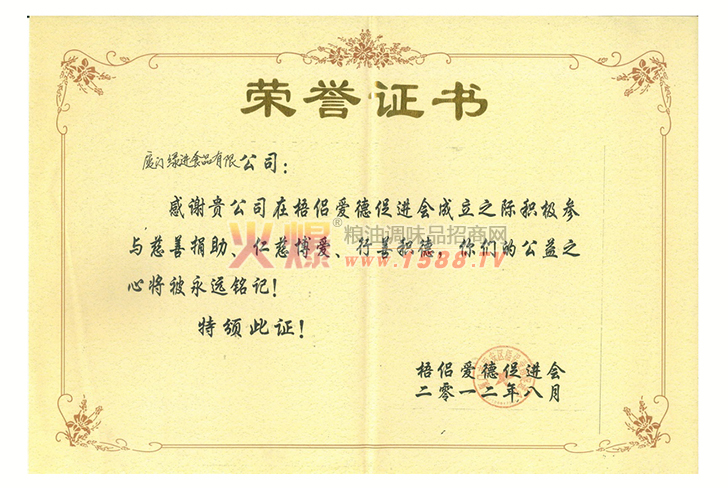 荣誉证书
厦门绿进食品有限公司：
感谢贵公司在梧侣爱德促进会成立之际积极参
与慈善捐助、仁慈博爱、行善积德，你们的公益之
心将被永远铭记！
特颁此证！
火爆®粮油调味品招商网
www.1588.TV
梧侣爱德促进会
二零一二年八月